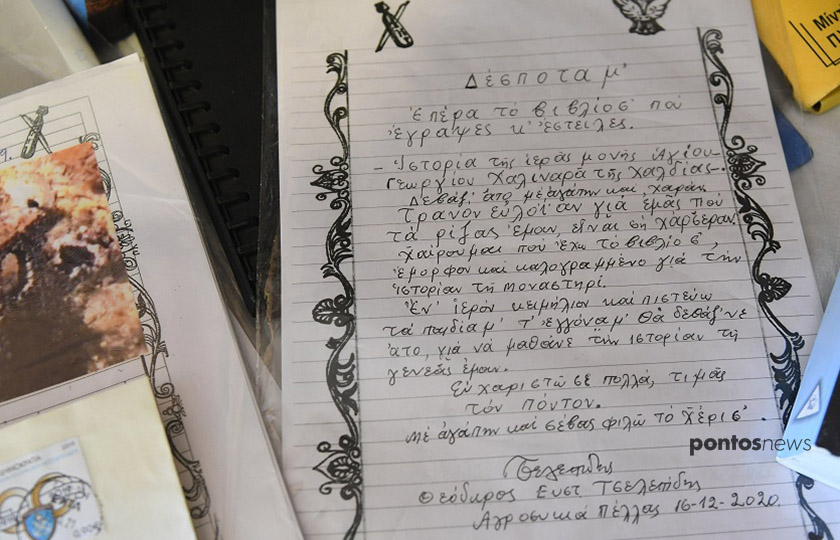 Δέσποτα μ'
Ἐπέρα τὸ βιβλίος' ποὺ
ἔγραψες κ' ἔστειλες.
- Ἱστορία τῆς ἱερᾶς μονῆς Ἁγίου
Γεωργίου Χαλιναρᾶ τῆς Χαλδίας.
Δεβάζ' ἀτο μὲ ἀγάπην καὶ χαράν.
Τρανὸν εὐλοΐαν γιὰ ἐμᾶς ποὺ
τὰ ρίζας ἐμουν, εἶναι σὴ Χάρσεραν,
χαίρουμαι ποὺ ἔχω τὸ βιβλίο σ',
ἔμορφον καὶ καλογραμμένο γιὰ τὴν
ἱστορίαν τῆ μοναστηρί.
Ἐν' ἱερὸν κειμήλιον καὶ πιστεύω
τὰ παιδία μ' τ' ἐγγόνα μ' θὰ δεβάζ'νε
ἀτο, γιὰ νὰ μαθάνε τὴν ἱστορίαν τῆ
γενεᾶς ἐμουν.
Εὐχαριστῶ σε πολλά, τιμᾶς
τὸν Πόντον.
Μὲ ἀγάπην καὶ σέβας φιλῶ τὸ χέρι σ'.
Τσελεπίδης
Θεόδωρος Ευστ Τσελεπίδης
Αγροσυκιά Πέλλας 16-12-2020.
pontosnews